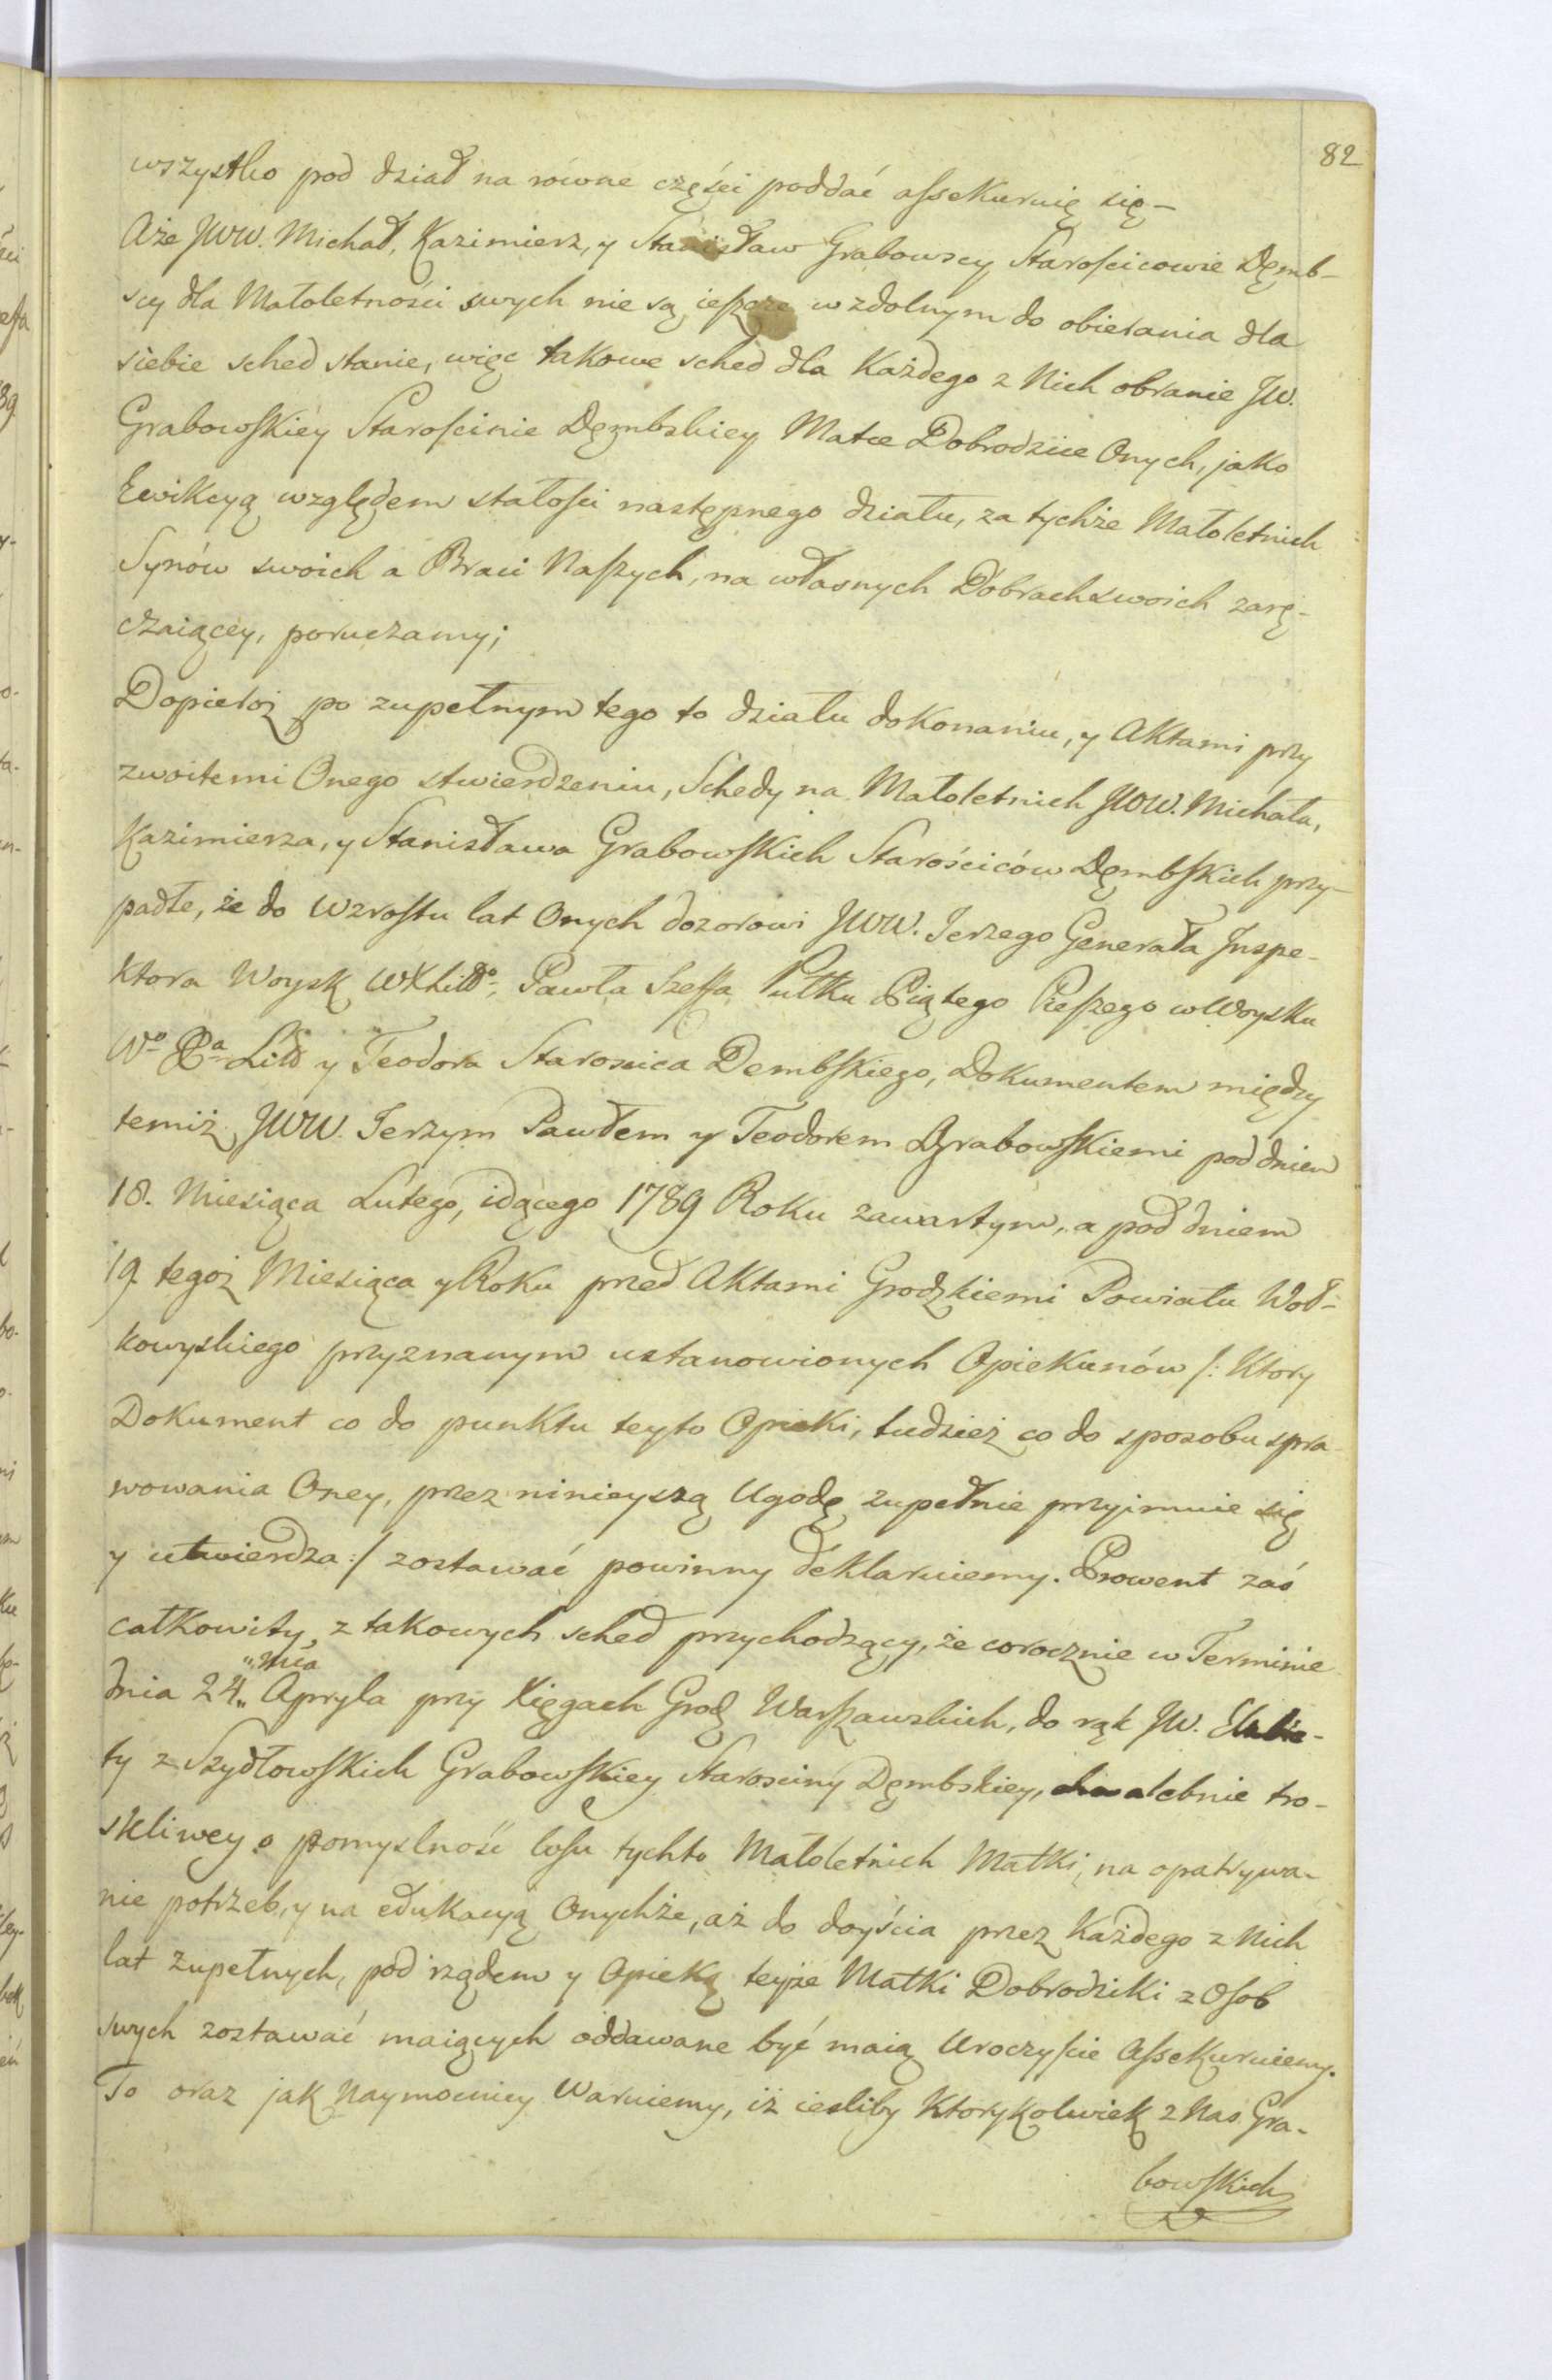 82
wszystko pod dział na rowne częśći poddać assekuruię się –
Aże JWW. Michał, Kazimierz, y Stanisław Grabowscy Starościcowie Dęmb-
scy dla Małoletności swych nie są ieszcze w zdolnym do obierania dla
siebie sched stanie, więc takowe sched dla Każdego z Nich obranie JW.
Grabowskiéy Starościnie Dęmbskiey Matce Dobrodzice Onych, jako
Ewikcyą względem stałości następnego działu, za tychże Małoletnich
Synów swoich a Braci Naszych, na własnych Dobrach swoich zarę-
czaiącey, poruczamy;
Dopieroż po zupełnym tego to działu dokonaniu, y Aktami przy
zwoitemi Onego stwierdzeniu, Schedy na Małoletnich JWW. Michała,
Kazimierza, y Stanisława Grabowskich Starościców Dęmbskich przy-
padłe, że do wzrostu lat Onych dozorowi JWW. Jerzego Generała Inspe-
ktora Woysk WXLitto, Pawła Szeffa Pułku Piątego Pieszego w Woysku
Wo Xa Litt y Teodora Starościca Dembskiego, Dokumentem między
temiż JWW. Jerzym Pawłem y Teodorem Grabowskiemi pod dniem
18. Miesiąca Lutego, idącego 1789 Roku zawartym, a pod dniem
19. tegoż Miesiąca y Roku przed Aktami Grodzkiemi Powiatu Woł-
kowyskiego przyznanym ustanowionych Opiekunów /: Ktory
Dokument co do punktu teyto Opieki, tudzież co do sposobu spra-
wowania Oney, przez ninieyszą Ugodę zupełnie przyjmuie się
y utwierdza :/ zostawać powinny deklaruiemy. Prowent zaś
całkowity, z takowych sched przychodzący, że corocznie w Terminie
dnia 24„ „mca Apryla przy Xięgach Grodz Warszawskich, do rąk JW. Elzbie-
ty z Szydłowskich Grabowskiey Starosciny Dęmbskiey, chwalebnie tro-
skliwey o pomyslność losu tychto Małoletnich Matki, na opatrywa-
nie potrzeb, y na edukacyą Onychże, aż do doyścia przez Każdego z Nich
lat zupełnych, pod rządem y Opieką teyże Matki Dobrodziki z Osob
swych zostawać maiących oddawane być maią Uroczyście Assekuruiemy.
To oraz jak Naymocniey Waruiemy, iż iesliby Ktorykolwiek z Nas Gra-
bowskich